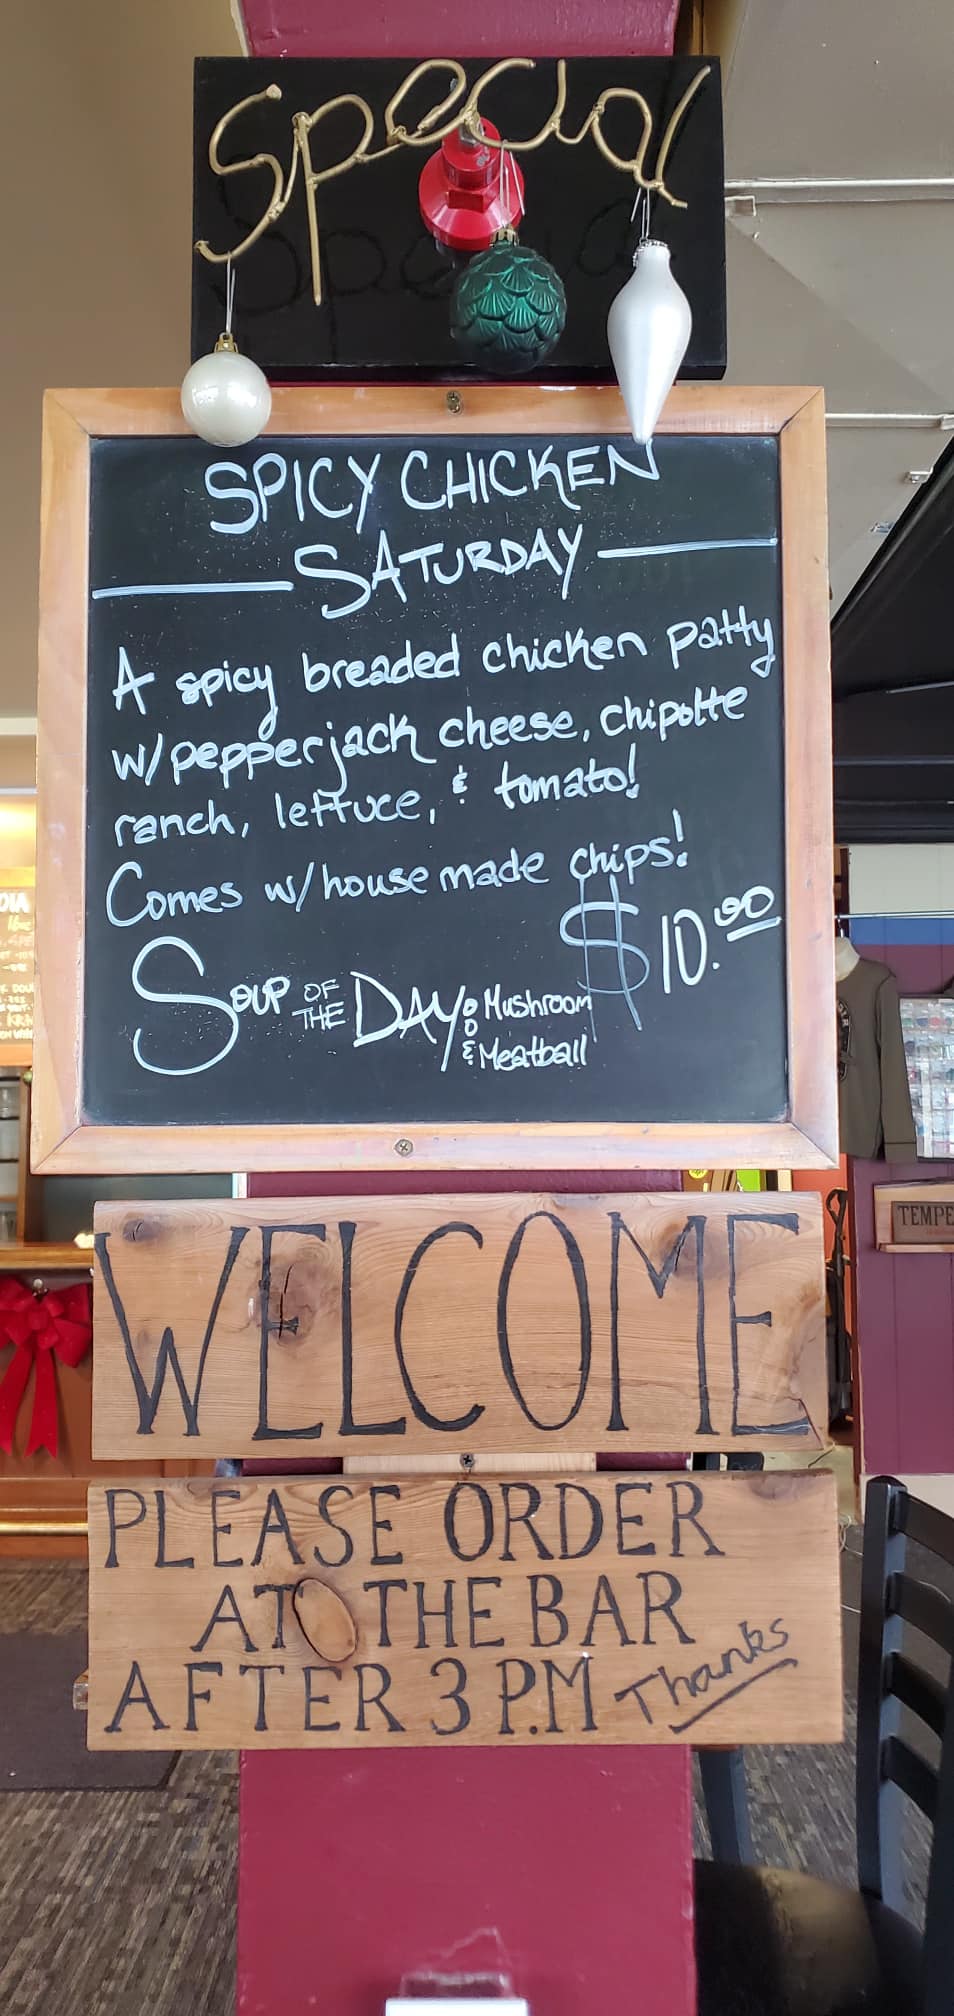 Special
SPICY CHICKEN
SATURDAY
A spicy breaded chicken patty
w/pepperjack cheese, chipotle
ranch, lettuce, & tomato!
Comes w/house made chips!
$10.00
SOUP OF THE DAY: Mushroom
& Meatball
WELCOME
PLEASE ORDER
AT THE BAR
AFTER 3 P.M Thanks
TEMPE